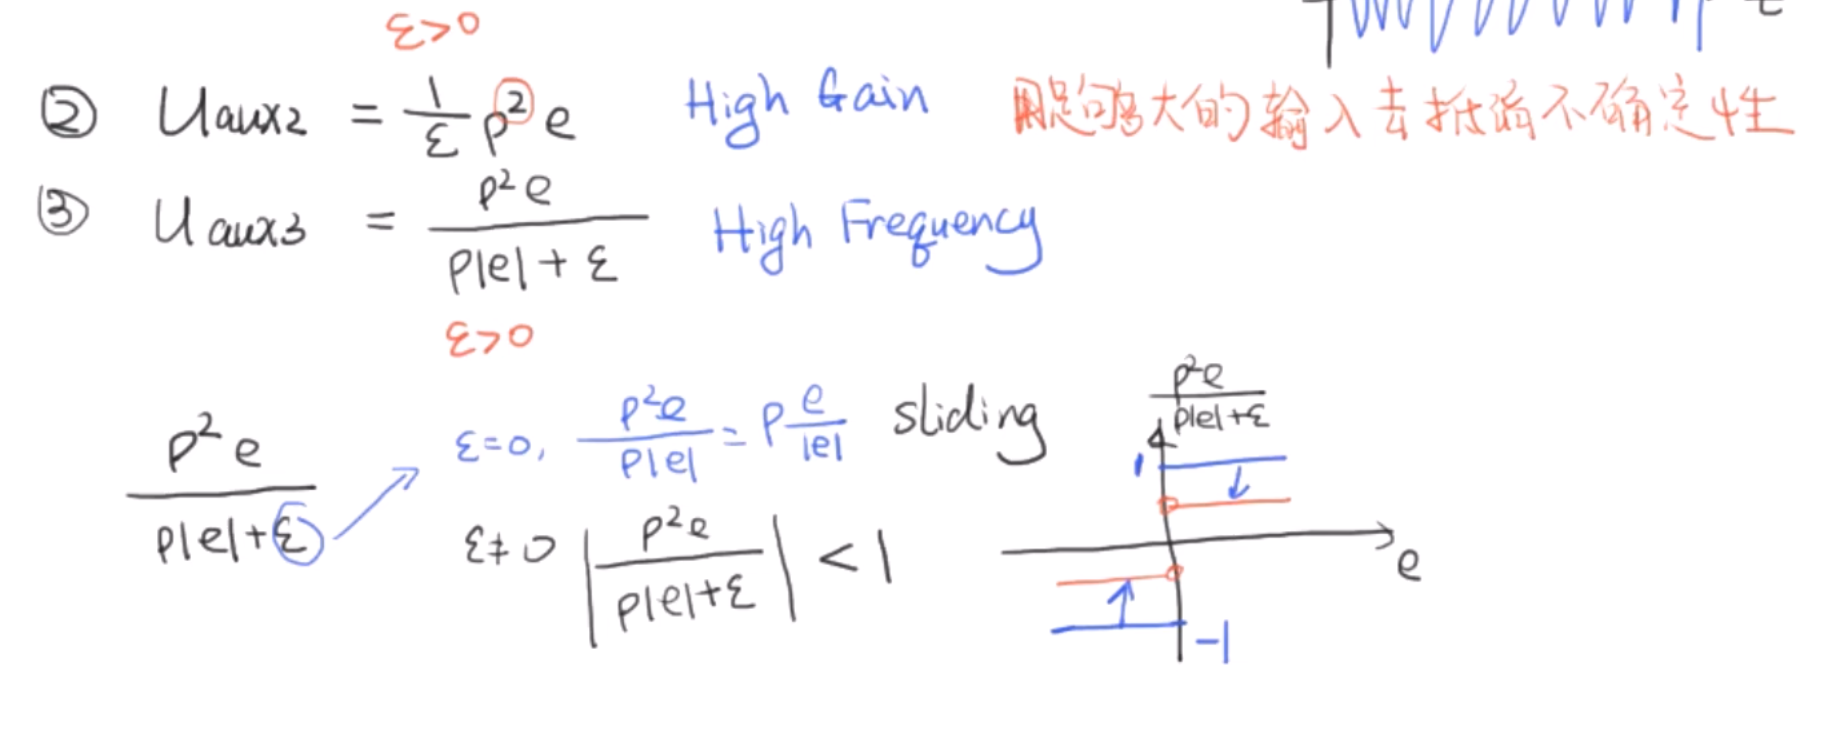 ε>0
t
② Uaux2 = 1/ε ρ² e High Gain 用足够大的输入去抵消不确定性
③ Uaux3 = ρ²e / ρ|e| + ε High Frequency
ε>0
ρ² e / ρ|e|+ε
ε=0, ρ²e / ρ|e| = ρ e/|e| sliding
ε≠0 | ρ²e / ρ|e|+ε | < 1
ρ²e / ρ|e|+ε
1
e
-1